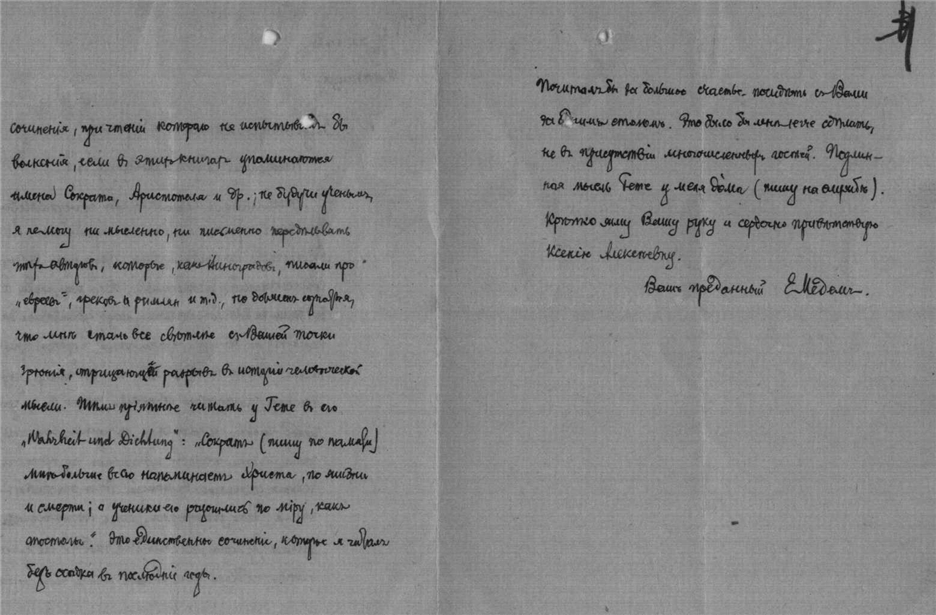 сочиненія, при чтеніи котораго не испытывалъ бы
волненія, если въ этихъ книгахъ упоминаются
имена Сократа, Аристотеля и др.; не будучи ученымъ,
я не могу ни мысленно, ни письменно передѣлывать
авторовъ, которые, какъ Виноградовъ, писали про
„евреевъ", грековъ и римлянъ и т.д., но долженъ сознаться,
что мнѣ стало все свѣтлѣе съ Вашей точки
зрѣнія, отрицающей разрывъ въ исторіи человѣческой
мысли. пріятнѣе читать у Гете въ его
„Wahrheit und Dichtung": „Сократъ (пишу по памяти)
мнѣ больше всего напоминаетъ Христа, по жизни
и смерти; а ученики его разошлись по міру, какъ
апостолы." Это единственное сочиненіе, которое я читалъ
безъ осадка въ послѣдніе годы.
Почиталъ бы за большое счастье посидѣть съ Вами
за Вашимъ столомъ. Это было бы мнѣ легче сдѣлать,
не въ присутствіи многочисленныхъ гостей. Подлин-
ная мысль Гете у меня дома (пишу на службѣ).
Крѣпко жму Вашу руку и сердечно привѣтствую
Ксенію Алексѣевну.
Вашъ преданный ЕМедемъ.